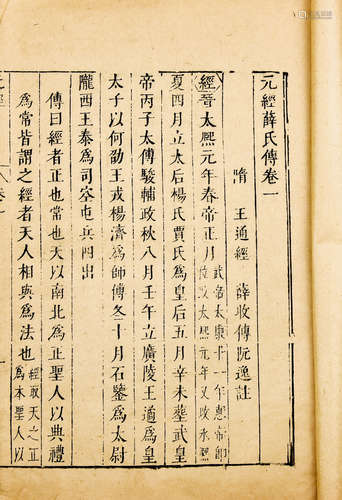 元經薛氏傳卷一
隋 王通經 薛收傳阮逸註
經晉太熙元年春帝正月武帝太康十一年惠帝即位改太熙元年又改永熙
夏四月立太后楊氏賈氏為皇后五月辛未葬武皇
帝丙子太傅駿輔政秋八月壬午立廣陵王遹為皇
太子以何劭王戎楊濟為師傅冬十月石鑒為太尉
隴西王泰為司空屯兵四出
傳曰經者正也常也天以南北為正聖人以典禮
為常皆謂之經者天人相與為法也經取天之正為本聖人以